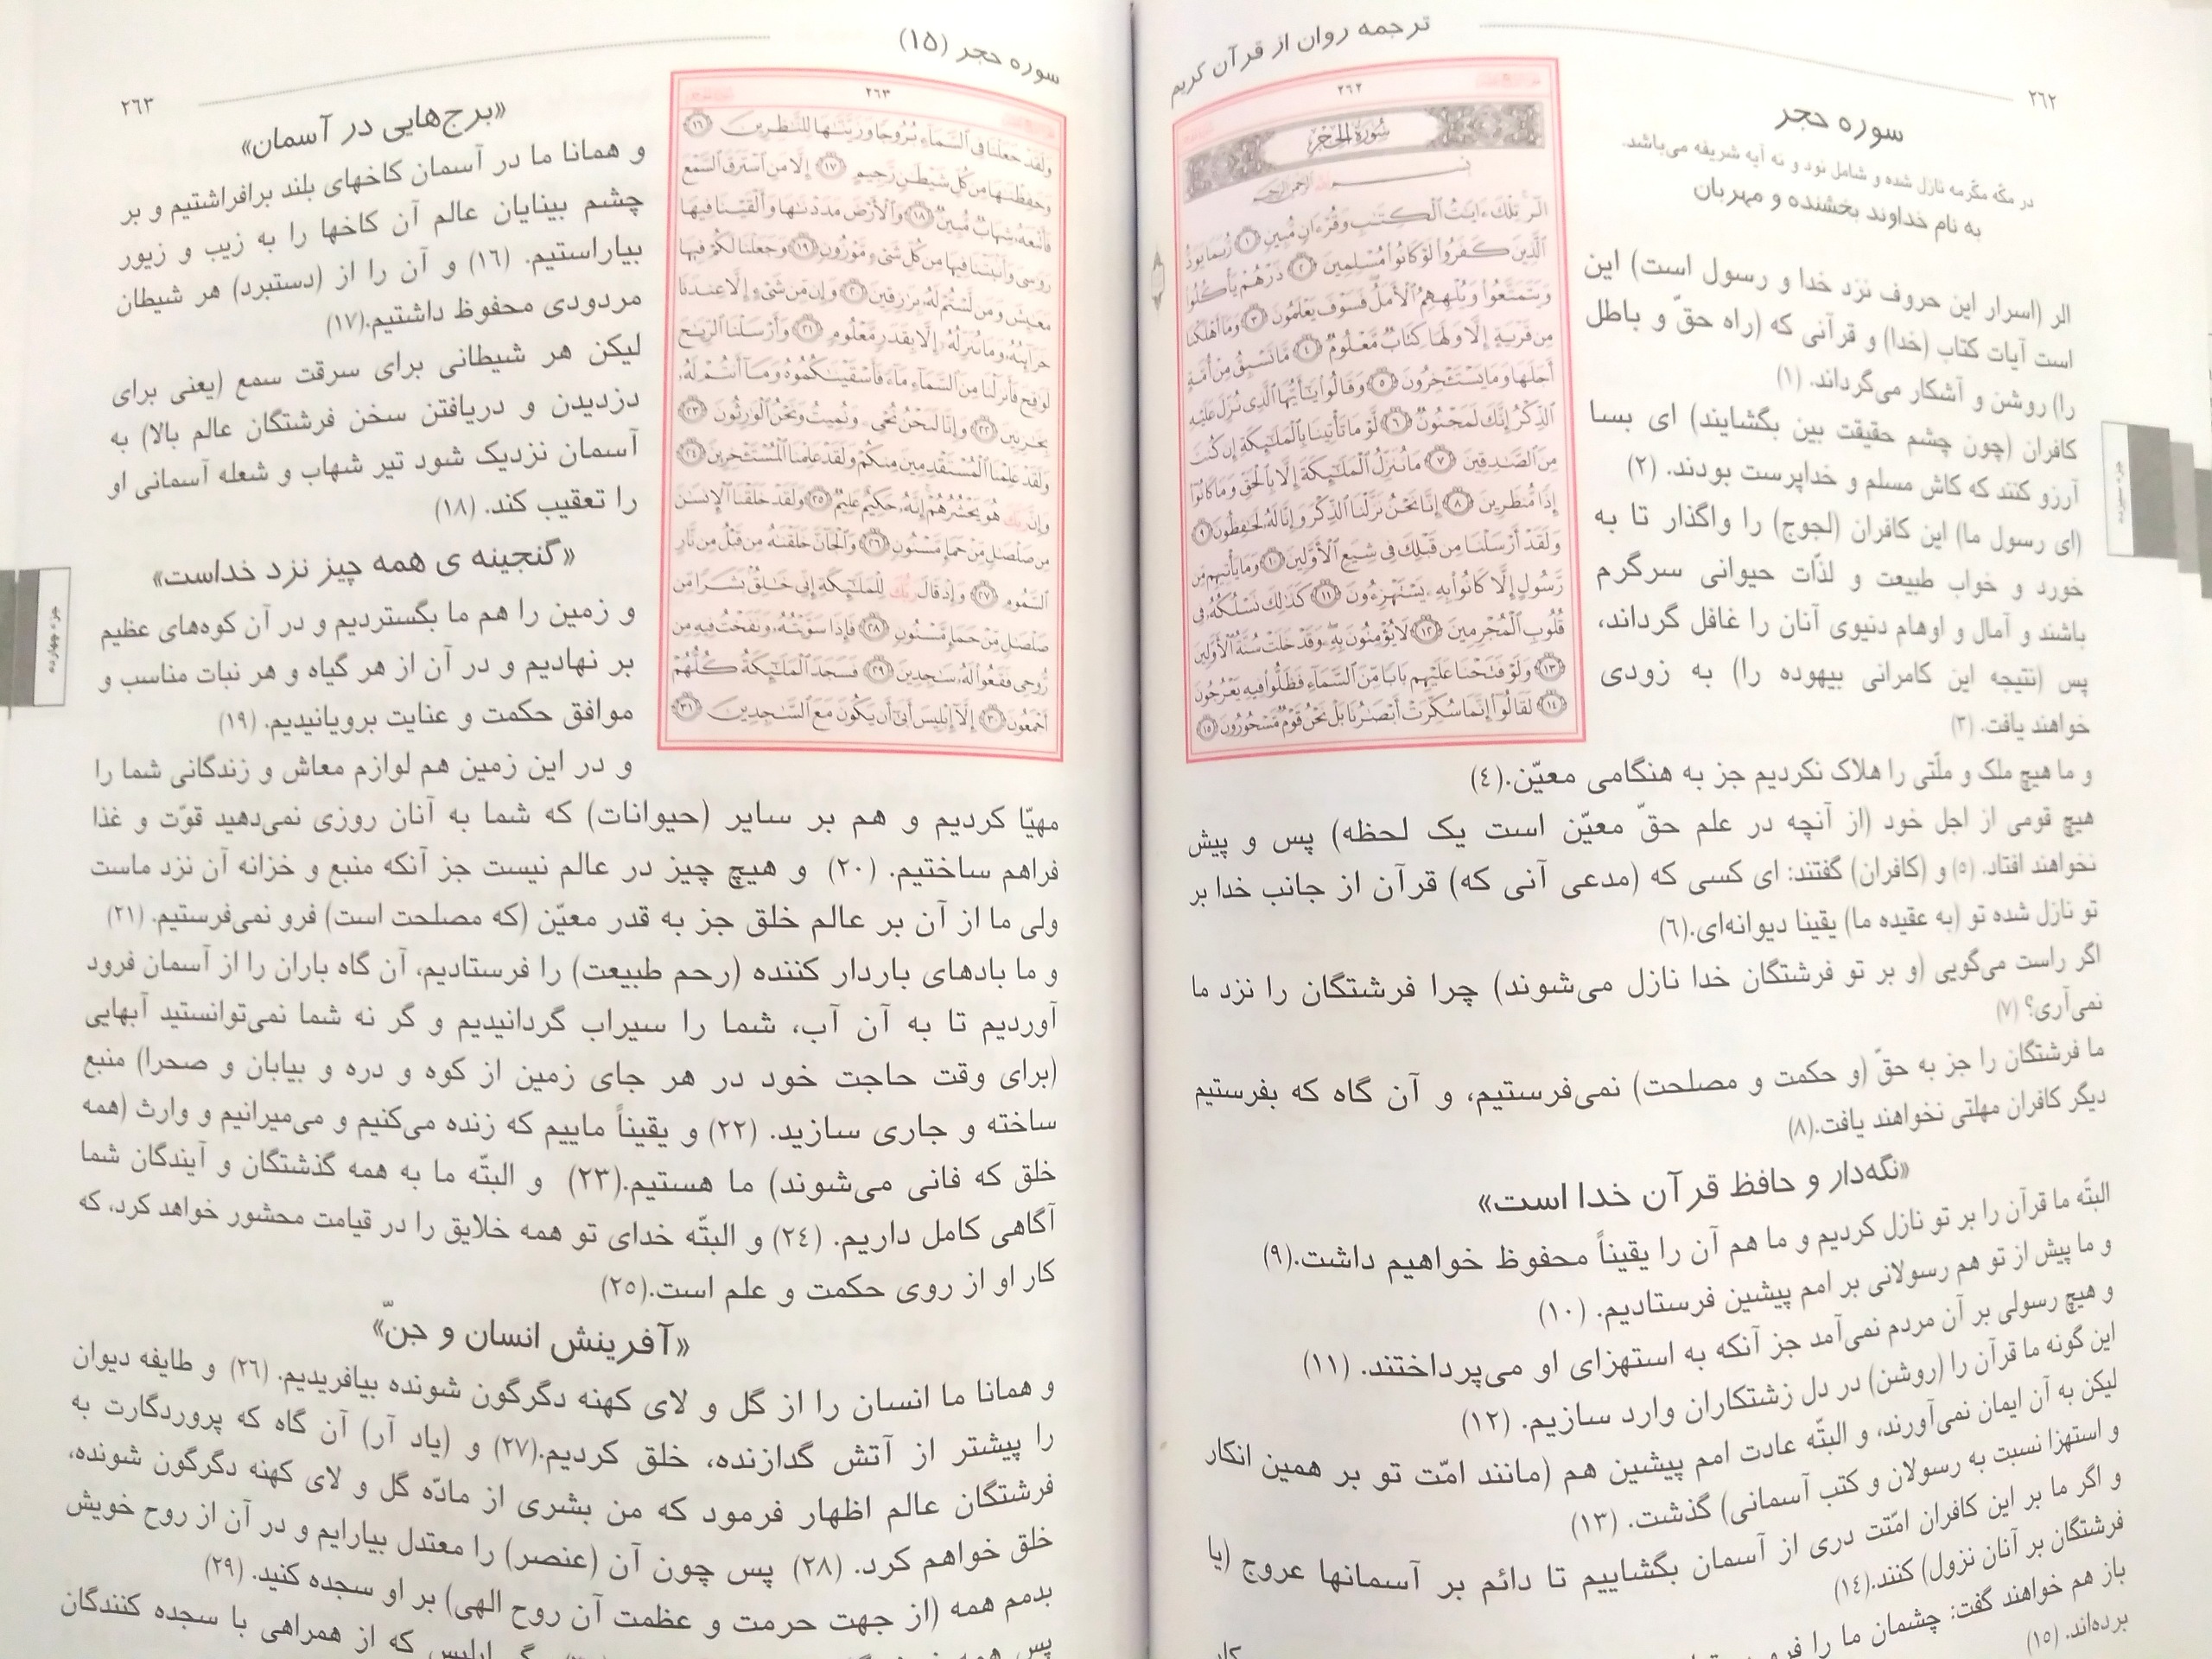 ترجمه روان از قرآن کریم
٢٦٢
سوره حجر
در مکّه مکرّمه نازل شده و شامل نود و نه آیه شریفه می‌باشد.
به نام خداوند بخشنده و مهربان
الر (اسرار این حروف نزد خدا و رسول است) این
است آیات کتاب (خدا) و قرآنی که (راه حقّ و باطل
را) روشن و آشکار می‌گرداند. (١)
کافران (چون چشم حقیقت بین بگشایند) ای بسا
آرزو کنند که کاش مسلم و خداپرست بودند. (٢)
(ای رسول ما) این کافران (لجوج) را واگذار تا به
خورد و خواب طبیعت و لذّات حیوانی سرگرم
باشند و آمال و اوهام دنیوی آنان را غافل گرداند،
پس (نتیجه این کامرانی بیهوده را) به زودی
خواهند یافت. (٣)
و ما هیچ ملک و ملّتی را هلاک نکردیم جز به هنگامی معیّن.(٤)
هیچ قومی از اجل خود (از آنچه در علم حقّ معیّن است یک لحظه) پس و پیش
نخواهند افتاد. (٥) و (کافران) گفتند: ای کسی که (مدعی آنی که) قرآن از جانب خدا بر
تو نازل شده تو (به عقیده ما) یقینا دیوانه‌ای.(٦)
اگر راست می‌گویی (و بر تو فرشتگان خدا نازل می‌شوند) چرا فرشتگان را نزد ما
نمی‌آری؟ (٧)
ما فرشتگان را جز به حقّ (و حکمت و مصلحت) نمی‌فرستیم، و آن گاه که بفرستیم
دیگر کافران مهلتی نخواهند یافت.(٨)
«نگه‌دار و حافظ قرآن خدا است»
البتّه ما قرآن را بر تو نازل کردیم و ما هم آن را یقیناً محفوظ خواهیم داشت.(٩)
و ما پیش از تو هم رسولانی بر امم پیشین فرستادیم. (١٠)
و هیچ رسولی بر آن مردم نمی‌آمد جز آنکه به استهزای او می‌پرداختند. (١١)
این گونه ما قرآن را (روشن) در دل زشتکاران وارد سازیم. (١٢)
لیکن به آن ایمان نمی‌آورند، و البتّه عادت امم پیشین هم (مانند امّت تو بر همین انکار
و استهزا نسبت به رسولان و کتب آسمانی) گذشت. (١٣)
و اگر ما بر این کافران امّتت دری از آسمان بگشاییم تا دائم بر آسمانها عروج (یا
فرشتگان بر آنان نزول) کنند.(١٤)
باز هم خواهند گفت: چشمان ما را
برده‌اند. (١٥)
٢٦٢
سُورَةُ الحِجْرِ
الٓر تِلْكَ ءَايَٰتُ ٱلْكِتَٰبِ وَقُرْءَانٍ مُّبِينٍ ١ رُّبَمَا يَوَدُّ
ٱلَّذِينَ كَفَرُوا۟ لَوْ كَانُوا۟ مُسْلِمِينَ ٢ ذَرْهُمْ يَأْكُلُوا۟
وَيَتَمَتَّعُوا۟ وَيُلْهِهِمُ ٱلْأَمَلُ فَسَوْفَ يَعْلَمُونَ ٣ وَمَآ أَهْلَكْنَا
مِن قَرْيَةٍ إِلَّا وَلَهَا كِتَابٌ مَّعْلُومٌ ٤ مَّا تَسْبِقُ مِنْ أُمَّةٍ
أَجَلَهَا وَمَا يَسْتَـْٔخِرُونَ ٥ وَقَالُوا۟ يَٰٓأَيُّهَا ٱلَّذِى نُزِّلَ عَلَيْهِ
ٱلذِّكْرُ إِنَّكَ لَمَجْنُونٌ ٦ لَّوْ مَا تَأْتِينَا بِٱلْمَلَٰٓئِكَةِ إِن كُنتَ
مِنَ ٱلصَّٰدِقِينَ ٧ مَا نُنَزِّلُ ٱلْمَلَٰٓئِكَةَ إِلَّا بِٱلْحَقِّ وَمَا كَانُوٓا۟
إِذًا مُّنظَرِينَ ٨ إِنَّا نَحْنُ نَزَّلْنَا ٱلذِّكْرَ وَإِنَّا لَهُۥ لَحَٰفِظُونَ ٩
وَلَقَدْ أَرْسَلْنَا مِن قَبْلِكَ فِى شِيَعِ ٱلْأَوَّلِينَ ١٠ وَمَا يَأْتِيهِم مِّن
رَّسُولٍ إِلَّا كَانُوا۟ بِهِۦ يَسْتَهْزِءُونَ ١١ كَذَٰلِكَ نَسْلُكُهُۥ فِى
قُلُوبِ ٱلْمُجْرِمِينَ ١٢ لَا يُؤْمِنُونَ بِهِۦ وَقَدْ خَلَتْ سُنَّةُ ٱلْأَوَّلِينَ
١٣ وَلَوْ فَتَحْنَا عَلَيْهِم بَابًا مِّنَ ٱلسَّمَآءِ فَظَلُّوا۟ فِيهِ يَعْرُجُونَ
١٤ لَقَالُوٓا۟ إِنَّمَا سُكِّرَتْ أَبْصَٰرُنَا بَلْ نَحْنُ قَوْمٌ مَّسْحُورُونَ ١٥
سوره حجر (١٥)
٢٦٣
٢٦٣
وَلَقَدْ جَعَلْنَا فِى ٱلسَّمَآءِ بُرُوجًا وَزَيَّنَّٰهَا لِلنَّٰظِرِينَ ١٦
وَحَفِظْنَٰهَا مِن كُلِّ شَيْطَٰنٍ رَّجِيمٍ ١٧ إِلَّا مَنِ ٱسْتَرَقَ ٱلسَّمْعَ
فَأَتْبَعَهُۥ شِهَابٌ مُّبِينٌ ١٨ وَٱلْأَرْضَ مَدَدْنَٰهَا وَأَلْقَيْنَا فِيهَا
رَوَٰسِىَ وَأَنۢبَتْنَا فِيهَا مِن كُلِّ شَىْءٍ مَّوْزُونٍ ١٩ وَجَعَلْنَا لَكُمْ فِيهَا
مَعَٰيِشَ وَمَن لَّسْتُمْ لَهُۥ بِرَٰزِقِينَ ٢٠ وَإِن مِّن شَىْءٍ إِلَّا عِندَنَا
خَزَآئِنُهُۥ وَمَا نُنَزِّلُهُۥٓ إِلَّا بِقَدَرٍ مَّعْلُومٍ ٢١ وَأَرْسَلْنَا ٱلرِّيَٰحَ
لَوَٰقِحَ فَأَنزَلْنَا مِنَ ٱلسَّمَآءِ مَآءً فَأَسْقَيْنَٰكُمُوهُ وَمَآ أَنتُمْ لَهُۥ
بِخَٰزِنِينَ ٢٢ وَإِنَّا لَنَحْنُ نُحْىِۦ وَنُمِيتُ وَنَحْنُ ٱلْوَٰرِثُونَ ٢٣
وَلَقَدْ عَلِمْنَا ٱلْمُسْتَقْدِمِينَ مِنكُمْ وَلَقَدْ عَلِمْنَا ٱلْمُسْتَـْٔخِرِينَ ٢٤
وَإِنَّ رَبَّكَ هُوَ يَحْشُرُهُمْ إِنَّهُۥ حَكِيمٌ عَلِيمٌ ٢٥ وَلَقَدْ خَلَقْنَا ٱلْإِنسَٰنَ
مِن صَلْصَٰلٍ مِّنْ حَمَإٍ مَّسْنُونٍ ٢٦ وَٱلْجَآنَّ خَلَقْنَٰهُ مِن قَبْلُ مِن نَّارِ
ٱلسَّمُومِ ٢٧ وَإِذْ قَالَ رَبُّكَ لِلْمَلَٰٓئِكَةِ إِنِّى خَٰلِقٌۢ بَشَرًا مِّن
صَلْصَٰلٍ مِّنْ حَمَإٍ مَّسْنُونٍ ٢٨ فَإِذَا سَوَّيْتُهُۥ وَنَفَخْتُ فِيهِ مِن
رُّوحِى فَقَعُوا۟ لَهُۥ سَٰجِدِينَ ٢٩ فَسَجَدَ ٱلْمَلَٰٓئِكَةُ كُلُّهُمْ
أَجْمَعُونَ ٣٠ إِلَّآ إِبْلِيسَ أَبَىٰٓ أَن يَكُونَ مَعَ ٱلسَّٰجِدِينَ ٣١
«برج‌هایی در آسمان»
و همانا ما در آسمان کاخهای بلند برافراشتیم و بر
چشم بینایان عالم آن کاخها را به زیب و زیور
بیاراستیم. (١٦) و آن را از (دستبرد) هر شیطان
مردودی محفوظ داشتیم.(١٧)
لیکن هر شیطانی برای سرقت سمع (یعنی برای
دزدیدن و دریافتن سخن فرشتگان عالم بالا) به
آسمان نزدیک شود تیر شهاب و شعله آسمانی او
را تعقیب کند. (١٨)
«گنجینه ی همه چیز نزد خداست»
و زمین را هم ما بگستردیم و در آن کوه‌های عظیم
بر نهادیم و در آن از هر گیاه و هر نبات مناسب و
موافق حکمت و عنایت برویانیدیم. (١٩)
و در این زمین هم لوازم معاش و زندگانی شما را
مهیّا کردیم و هم بر سایر (حیوانات) که شما به آنان روزی نمی‌دهید قوّت و غذا
فراهم ساختیم. (٢٠) و هیچ چیز در عالم نیست جز آنکه منبع و خزانه آن نزد ماست
ولی ما از آن بر عالم خلق جز به قدر معیّن (که مصلحت است) فرو نمی‌فرستیم. (٢١)
و ما بادهای باردار کننده (رحم طبیعت) را فرستادیم، آن گاه باران را از آسمان فرود
آوردیم تا به آن آب، شما را سیراب گردانیدیم و گر نه شما نمی‌توانستید آبهایی
(برای وقت حاجت خود در هر جای زمین از کوه و دره و بیابان و صحرا) منبع
ساخته و جاری سازید. (٢٢) و یقیناً ماییم که زنده می‌کنیم و می‌میرانیم و وارث (همه
خلق که فانی می‌شوند) ما هستیم.(٢٣) و البتّه ما به همه گذشتگان و آیندگان شما
آگاهی کامل داریم. (٢٤) و البتّه خدای تو همه خلایق را در قیامت محشور خواهد کرد، که
کار او از روی حکمت و علم است.(٢٥)
«آفرینش انسان و جنّ»
و همانا ما انسان را از گل و لای کهنه دگرگون شونده بیافریدیم. (٢٦) و طایفه دیوان
را پیشتر از آتش گدازنده، خلق کردیم.(٢٧) و (یاد آر) آن گاه که پروردگارت به
فرشتگان عالم اظهار فرمود که من بشری از مادّه گل و لای کهنه دگرگون شونده،
خلق خواهم کرد. (٢٨) پس چون آن (عنصر) را معتدل بیارایم و در آن از روح خویش
بدمم همه (از جهت حرمت و عظمت آن روح الهی) بر او سجده کنید. (٢٩)
پس همه ابلیس که از همراهی با سجده کنندگان
جزء چهارده